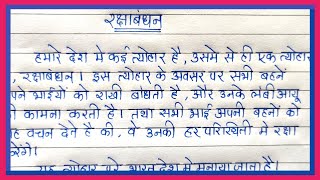 रक्षाबंधन
हमारे देश मे कई त्योहार है, उसमे से ही एक त्योहार
, रक्षाबंधन। इस त्योहार के अवसर पर सभी बहनें
पने भाईयों को राखी बाँधती है, और उनके लंबी आयू
ी कामना करती है। तथा सभी भाई अपनी बहनों को
ह वचन देते है की, वे उनकी हर परिस्थिती मे रक्षा
रेंगे।
यह त्योहार पूरे भारत देश मे मनाया जाता है।